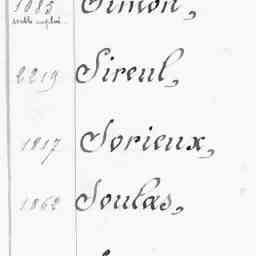 1085 Simon,
2219 Sireul,
1817 Sorieux,
1862 Soulas,